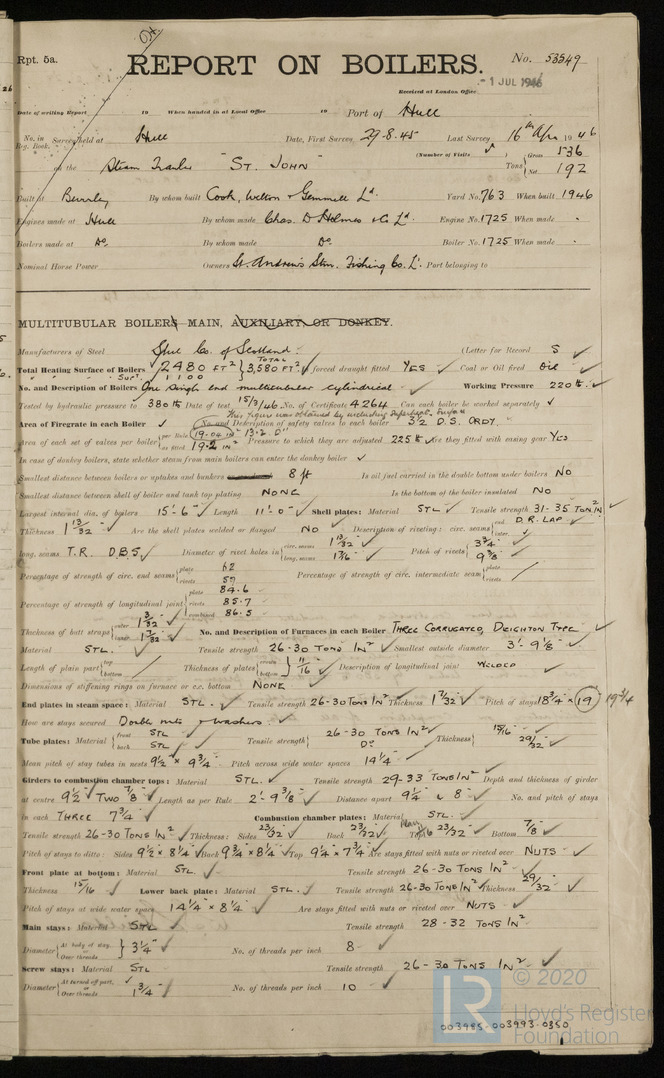 Rpt. 5a.
REPORT ON BOILERS.
No. 53549
Received at London Office
-1 JUL 1946
Date of writing Report to When handed in at Local Office to Port of Hull
No. in Reg. Book. Survey held at Hull Date, First Survey 29-8-45 Last Survey 16th Apr 1946
(Number of Visits )
on the Steam Trawler "ST. JOHN" Tons Gross 536 Net 192
Built at Beverley By whom built Cook, Welton & Gemmell Ld. Yard No. 763 When built 1946
Engines made at Hull By whom made Chas. D. Holmes & Co. Ld. Engine No. 1725 When made
Boilers made at Do. By whom made Do. Boiler No. 1725 When made
Nominal Horse Power Owners St. Andrew's Stm. Fishing Co. Ld. Port belonging to
MULTITUBULAR BOILERS MAIN, AUXILIARY, OR DONKEY.
Manufacturers of Steel Steel Co. of Scotland. (Letter for Record S )
Total Heating Surface of Boilers 2480 FT² TOTAL 3,580 FT² Is forced draught fitted YES Coal or Oil fired Oil
SUPT. 1100
No. and Description of Boilers One single end multitubular cylindrical Working Pressure 220 lb.
Tested by hydraulic pressure to 380 lb Date of test 15/3/46 No. of Certificate 4264 Can each boiler be worked separately
This figure was obtained by including superheat.
Area of Firegrate in each Boiler No. and Description of safety valves to each boiler 3½ D.S. ORDY.
Area of each set of valves per boiler per Rule 19.04 in² 13.2 as fitted 19.2 IN² Pressure to which they are adjusted 225 lb Are they fitted with easing gear YES
In case of donkey boilers, state whether steam from main boilers can enter the donkey boiler
Smallest distance between boilers or uptakes and bunkers 8 ft Is oil fuel carried in the double bottom under boilers No
Smallest distance between shell of boiler and tank top plating NONE Is the bottom of the boiler insulated No
Largest internal dia. of boilers 15'-6" Length 11'-0" Shell plates: Material STL Tensile strength 31-35 TON IN²
Thickness 1 13/32 Are the shell plates welded or flanged No Description of riveting: circ. seams end D.R. LAP. inter.
long. seams T.R. D.B.S Diameter of rivet holes in circ. seams 1 13/32 long. seams 1 7/16 Pitch of rivets 3¾ 9 3/8
Percentage of strength of circ. end seams plate 62 rivets 57 Percentage of strength of circ. intermediate seam plate rivets
Percentage of strength of longitudinal joint plate 84.6 rivets 85.7 combined 86.5
Thickness of butt straps outer 1 3/32 inner 1 7/32 No. and Description of Furnaces in each Boiler THREE CORRUGATED, DEIGHTON TYPE
Material STL. Tensile strength 26-30 TONS IN² Smallest outside diameter 3'-9 1/8"
Length of plain part top bottom Thickness of plates crown bottom 11/16" Description of longitudinal joint WELDED
Dimensions of stiffening rings on furnace or c.c. bottom NONE
End plates in steam space: Material STL. Tensile strength 26-30 TONS IN² Thickness 1 7/32 Pitch of stays 18¾" × 19 19¾
How are stays secured Double nuts & washers.
Tube plates: Material front STL back STL Tensile strength 26-30 TONS IN² Do. Thickness 15/16" 29/32
Mean pitch of stay tubes in nests 9½" × 9¾" Pitch across wide water spaces 14¼"
Girders to combustion chamber tops: Material STL. Tensile strength 29-33 TONS IN² Depth and thickness of girder
at centre 9½" Two 7/8" Length as per Rule 2'-9 3/8" Distance apart 9¼" & 8" No. and pitch of stays
in each THREE 7¾" Combustion chamber plates: Material STL.
Tensile strength 26-30 TONS IN² Thickness: Sides 23/32" Back 23/32" Top 23/32" Bottom 7/8"
Pitch of stays to ditto: Sides 9½" × 8¼" Back 9¾" × 8¼" Top 9¼" × 7¾" Are stays fitted with nuts or riveted over NUTS
Front plate at bottom: Material STL. Tensile strength 26-30 TONS IN²
Thickness 15/16" Lower back plate: Material STL. Tensile strength 26-30 TONS IN² Thickness 29/32"
Pitch of stays at wide water space 14¼" × 8¼" Are stays fitted with nuts or riveted over NUTS
Main stays: Material STL Tensile strength 28-32 TONS IN²
Diameter At body of stay, or Over threads 3¼" No. of threads per inch 8
Screw stays: Material STL Tensile strength 26-30 TONS IN²
Diameter At turned off part, or Over threads 1¾" No. of threads per inch 10
© 2020
Lloyd's Register
Foundation
003985-003993-0350